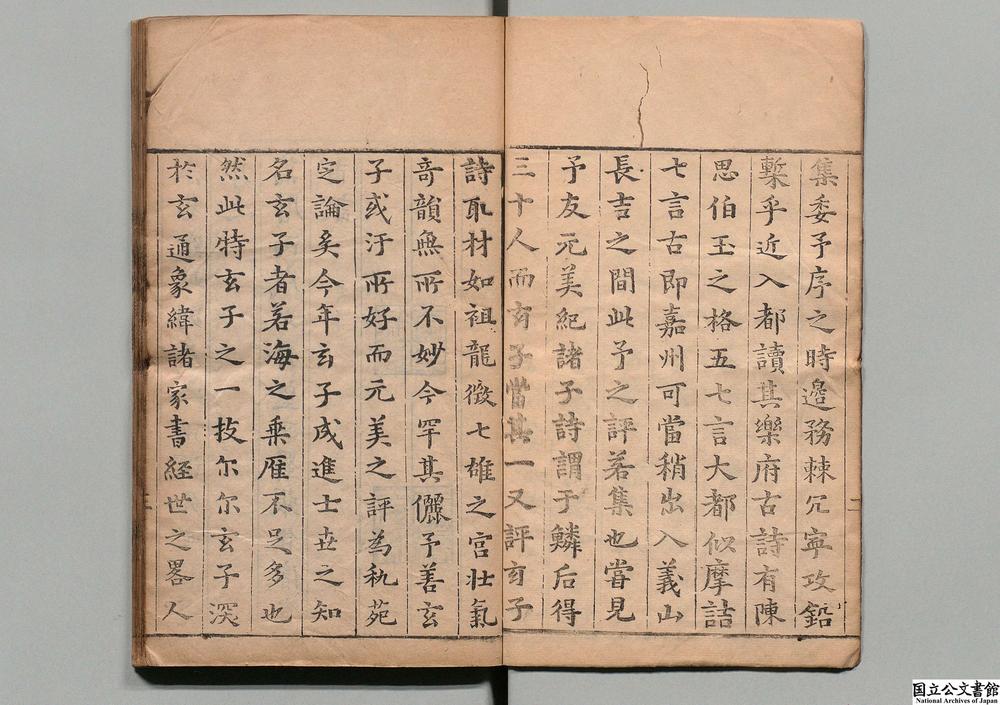 集委予序之時邉務棘冗寧攻鉛
槧乎近入都讀其樂府古詩有陳
思伯玉之格五七言大都似摩詰
七言古即嘉州可當稍出入義山
長吉之間此予之評若集也嘗見
予友元美紀諸子詩謂于鱗后得
三十人而玄子當其一又評玄子
詩取材如祖龍徴七雄之宫壯氣
奇韻無所不妙今罕其儷予善玄
子或汙所好而元美之評為秇苑
定論矣今年玄子成進士丗之知
名玄子者若海之乗雁不足多也
然此特玄子之一技尔尔玄子深
於玄通象緯諸家書経世之畧人
国立公文書館
National Archives of Japan